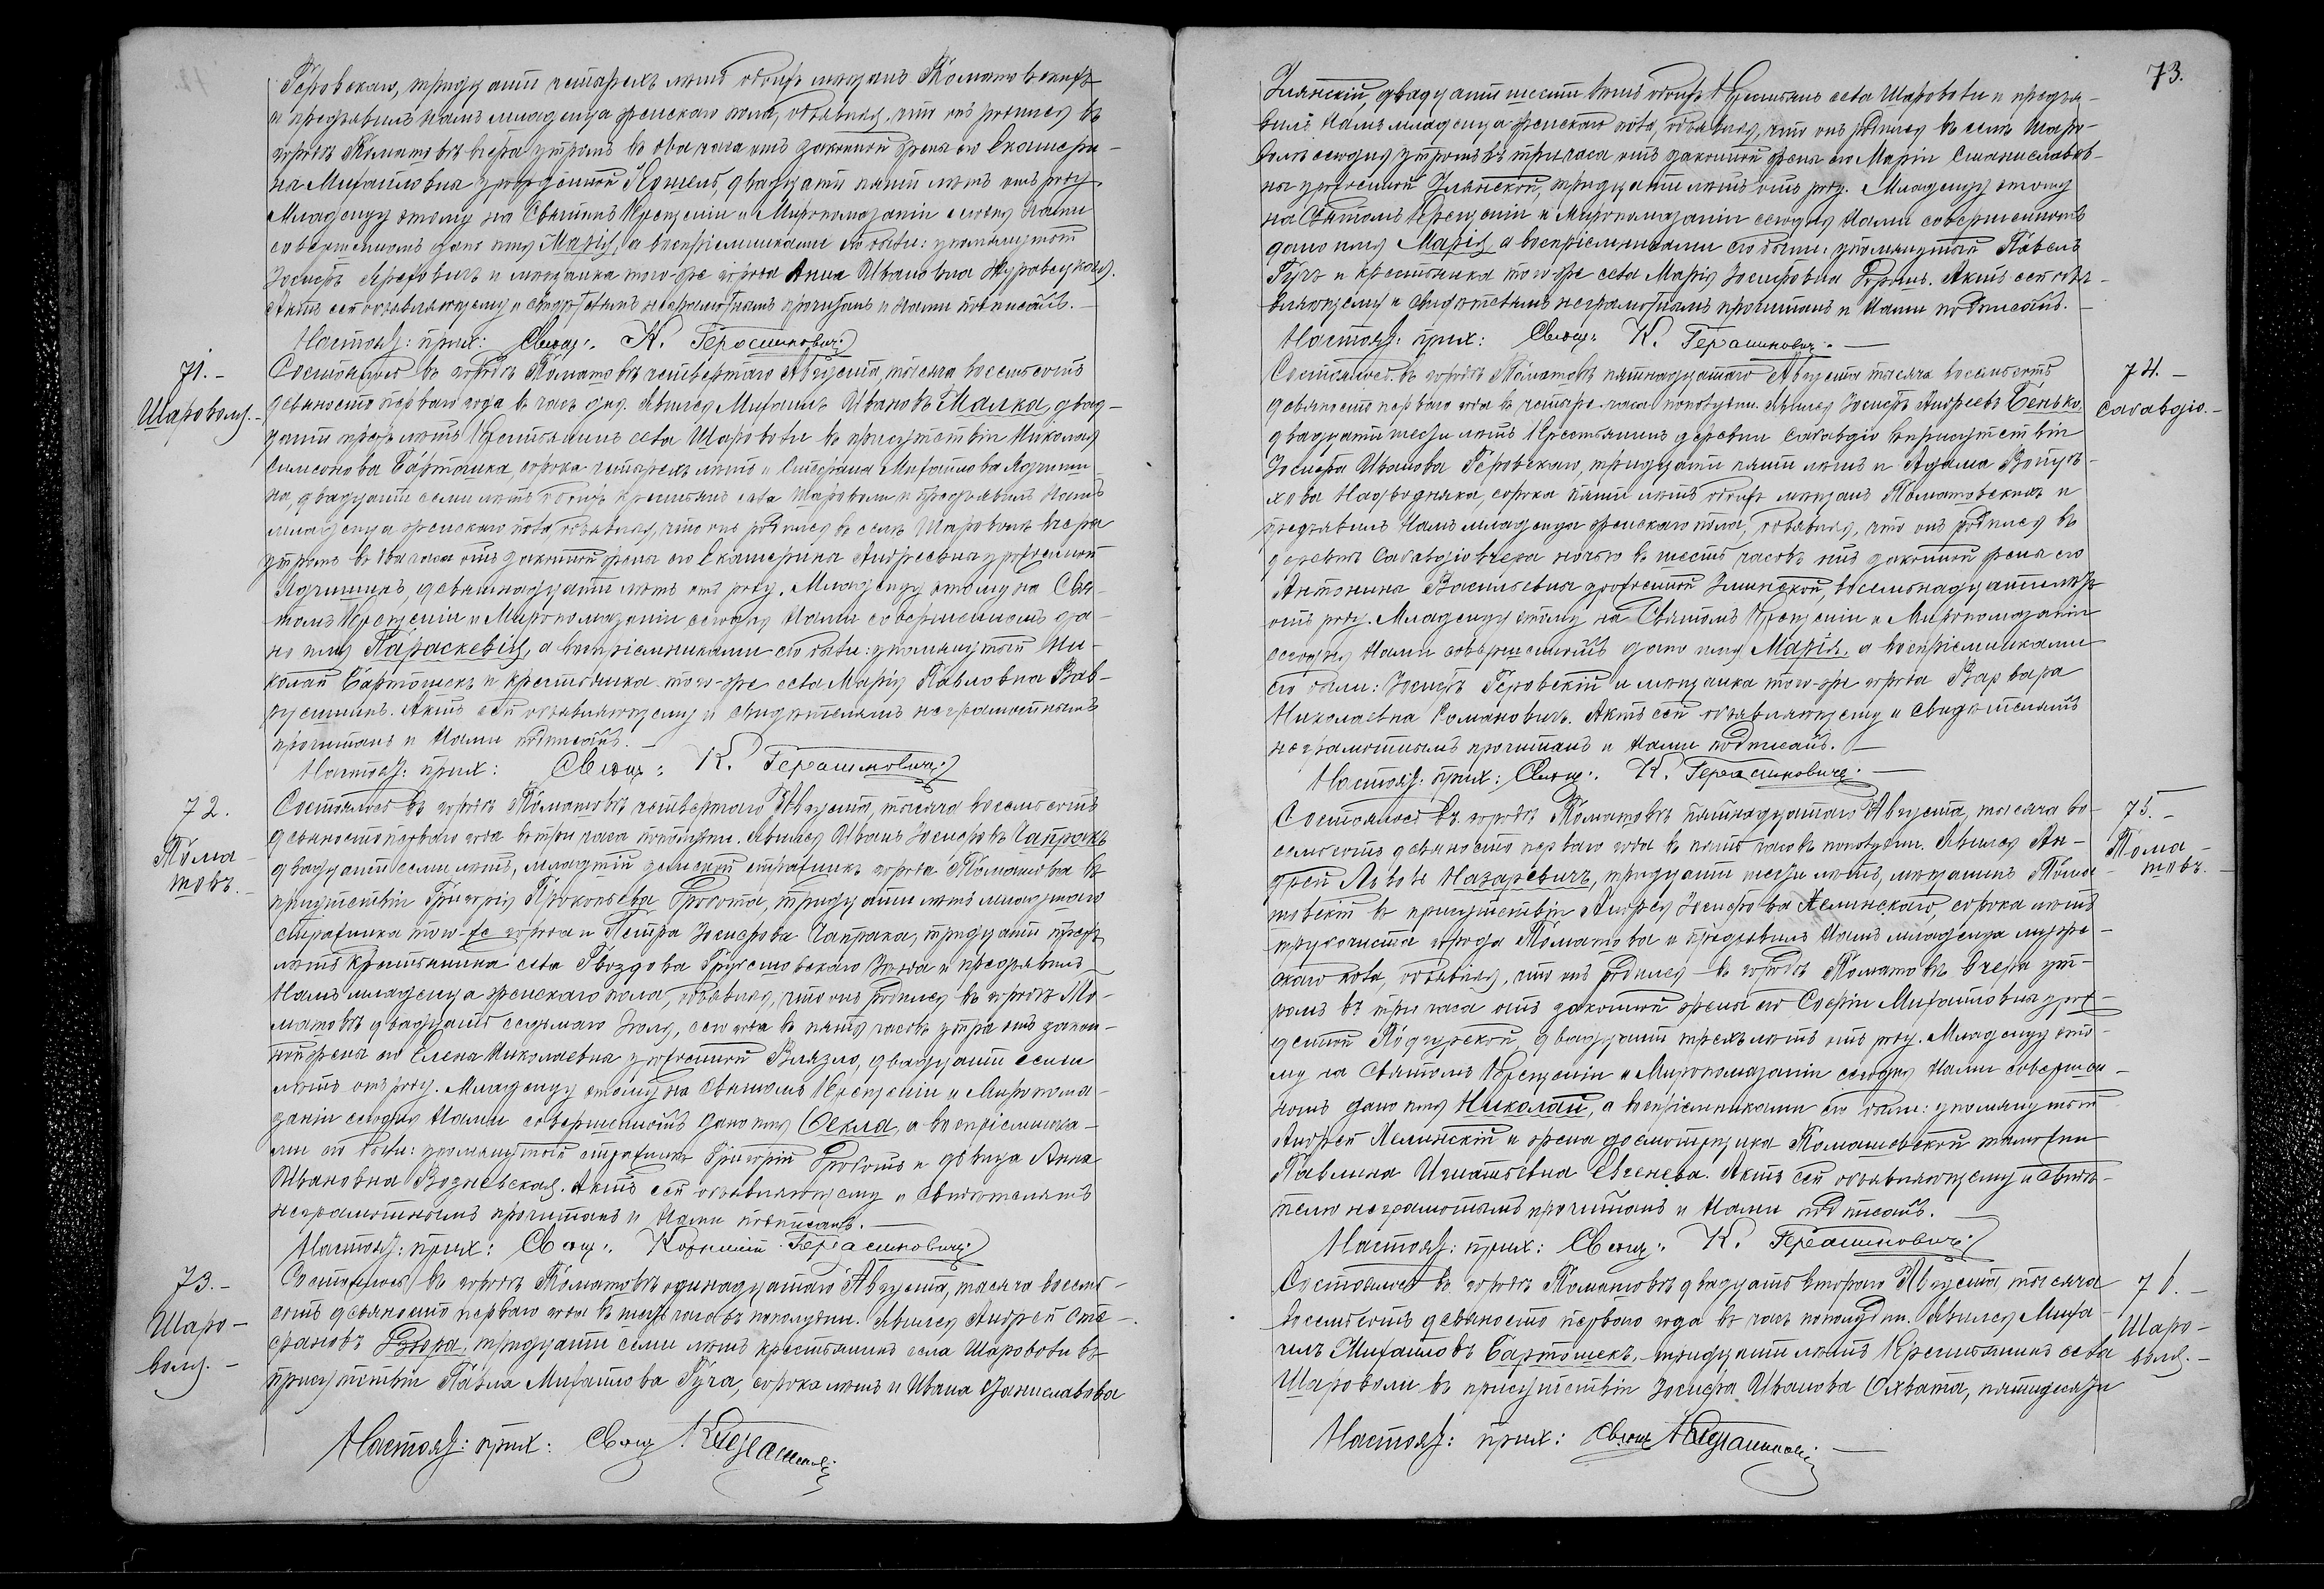 Геровскаго, тридцати четырехъ лѣтъ обоихъ мѣщанъ Томашовскихъ
и предъявилъ намъ младенца женскаго пола, объявляя, что онъ родился въ
городѣ Томашовѣ вчера утромъ въ два часа отъ законной жены его Екатери-
ны Михайловны урожденной Кошель, двадцати пяти лѣтъ отъ роду.
Младенцу этому на Святомъ Крещеніи и Миропомазаніи сегодня нами
совершенномъ дано имя Марія, а воспріемниками его были: упомянутый
Іосифъ и мѣщанка того-же города Анна Ивановна Журавецкая.
Актъ сей объявляющему и свидѣтелямъ неграмотнымъ прочитанъ и Нами подписанъ. -
Настоя: прих: Свящ: К. Герасимовичъ
71. -
Шароволя. -
Состоялось въ городѣ Томашовѣ четвертаго Августа, тысяча восемьсотъ
девяносто перваго года въ часъ дня. Явился Михаилъ Ивановъ Малка, двад-
цати трехъ лѣтъ Крестьянинъ села Шароволи въ присутствіи Николая
Симеонова Бартошика, сорока четырехъ лѣтъ и Стефана Михайлова
на, двадцати семи лѣтъ обоихъ крестьянъ села Шароволи и предъявилъ Намъ
младенца женскаго пола объявляя, что онъ родился въ селѣ Шароволѣ вчера
утромъ въ два часа отъ законной жены его Екатерины Андреевны урожденной
девятнадцати лѣтъ отъ роду. Младенцу этому на Свя-
томъ Крещеніи и Миропомазаніи сегодня Нами совершенномъ да-
но имя Параскевія, а воспріемниками его были: упомянутый Ни-
колай Бартошекъ и крестьянка того-же села Марія Павловна Вав-
Актъ сей объявляющему и свидѣтелямъ неграмотнымъ
прочитанъ и Нами подписанъ. -
Настоя: прих: Свящ: К. Герасимовичъ
72.
Тома-
шовъ. -
Состоялось въ городѣ Томашовѣ четвертаго Августа, тысяча восемьсотъ
девяносто перваго года въ три часа пополудни. Явился Иванъ Іосифовъ Чапракъ
двадцати семи лѣтъ, младшій земскій стражникъ города Томашова въ
присутствіи Григорія Прокопьева тридцати лѣтъ младшаго
стражника того-же города и Петра Іосифова Чапрака, тридцати трехъ
лѣтъ крестьянина села Гвоздова и предъявилъ
Намъ младенца женскаго пола, объявляя, что онъ родился въ городѣ То-
машовѣ двадцать седьмаго Іюля, сего года въ пять часовъ утра отъ закон-
ной жены его Елены Николаевны урожденной Влязло, двадцати семи
лѣтъ отъ роду. Младенцу этому на Святомъ Крещеніи и Миропома-
заніи сегодня Нами совершенномъ дано имя Ѳекла, а воспріемника-
ми его были: упомянутый стражникъ Григорій и дѣвица Анна
Ивановна Возневская. Актъ сей объявляющему и свидѣтелямъ
неграмотнымъ прочитанъ и Нами подписанъ. -
Настоя: прих: Свящ: Корнилій Герасимовичъ
73. -
Шаро-
воля. -
Состоялось въ городѣ Томашовѣ одинадцатаго Августа, тысяча восемь-
сотъ девяносто перваго года въ шесть часовъ пополудни. Явился Андрей Сте-
фановъ тридцати семи лѣтъ крестьянинъ села Шароволи въ
присутствіи Павла Михайлова Гуча, сорока лѣтъ и Ивана Станиславова
Настоя: прих: Свящ К Герасимов
73.
двадцати шести лѣтъ обоихъ Крестьянъ села Шароволи и предъя-
вилъ Намъ младенца женскаго пола, объявляя, что онъ родился въ селѣ Шаро-
волѣ сегодня утромъ въ три часа отъ законной жены его Маріи Станиславов-
ны урожденной тридцати лѣтъ отъ роду. Младенцу этому
на Святомъ Крещеніи и Миропомазаніи сегодня Нами совершенномъ
дано имя Марія, а воспріемниками его были: упомянутый Павелъ
Гучъ и крестьянка того-же села Марія Іосифовна Актъ сей объя-
вляющему и свидѣтелямъ неграмотнымъ прочитанъ и Нами подписанъ. -
Настоя: прих: Свящ: К. Герасимовичъ. -
74. -
Состоялось въ городѣ Томашовѣ пятнадцатаго Августа тысяча восемьсотъ
девяносто перваго года въ четыре часа пополудни. Явился Іосифъ Андреевъ Бенько,
двадцати шести лѣтъ Крестьянинъ деревни въ присутствіи
Іосифа Иванова Геровскаго, тридцати пяти лѣтъ и Адама
сорока пяти лѣтъ обоихъ мѣщанъ Томашовскихъ и
предъявилъ Намъ младенца женскаго пола, объявляя, что онъ родился въ
деревнѣ вчера ночью въ шесть часовъ отъ законной жены его
Антонины Васильевны урожденной восемнадцати лѣтъ
отъ роду. Младенцу этому на Святомъ Крещеніи и Миропомазаніи
сегодня Нами совершенномъ дано имя Марія, а воспріемниками
его были: Іосифъ Геровскій и мѣщанка того-же города Варвара
Николаевна Романовичъ. Актъ сей объявляющему и свидѣтелямъ
неграмотнымъ прочитанъ и Нами подписанъ. -
Настоя: прих: Свящ: К. Герасимовичъ. -
75. -
Тома-
шовъ. -
Состоялось въ городѣ Томашовѣ пятнадцатаго Августа, тысяча во-
семьсотъ девяносто перваго года въ пять часовъ пополудни. Явился Ан-
дрей Львовъ Назаревичъ, тридцати шести лѣтъ, мѣщанинъ Тома-
шовскій въ присутствіи Андрея Іосифова Желинскаго, сорока лѣтъ
трубочиста города Томашова и предъявилъ Намъ младенца муже-
скаго пола, объявляя, что онъ родился въ городѣ Томашовѣ вчера ут-
ромъ въ три часа отъ законной жены его Софіи Михайловны урож-
денной двадцати трехъ лѣтъ отъ роду. Младенцу это-
му на Святомъ Крещеніи и Миропомазаніи сегодня Нами совершен-
номъ дано имя Николай, а воспріемниками его были: упомянутый
Андрей Желинскій и жена досмотрщика Томашовской таможни
Павлина Игнатьевна Евченева. Актъ сей объявляющему и свидѣ-
телю неграмотнымъ прочитанъ и Нами подписанъ.
Настоя: прих: Свящ: К. Герасимовичъ
76. -
Шаро-
воля. -
Состоялось въ городѣ Томашовѣ двадцать втораго Августа, тысяча
восемьсотъ девяносто перваго года въ часъ пополудни. Явился Миха-
илъ Михайловъ Бартошекъ, тридцати лѣтъ Крестьянинъ села
Шароволи въ присутствіи Іосифа Иванова пятидесяти
Настоя: прих: Свящ К Герасимов